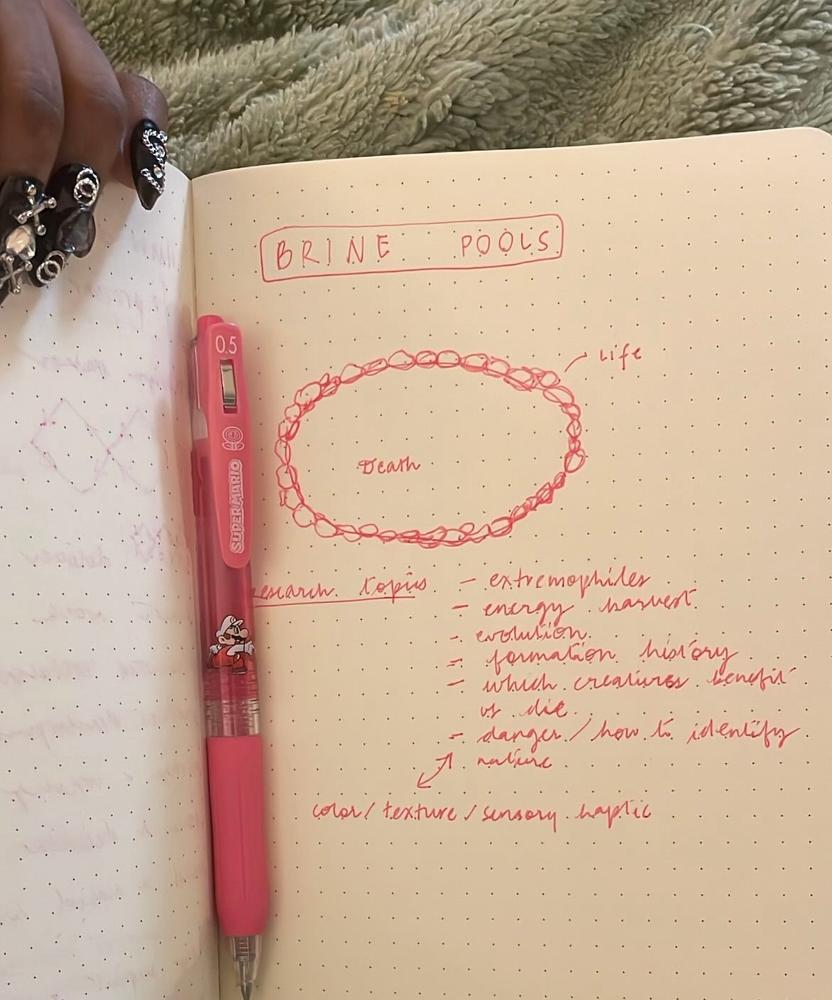 BRINE POOLS
Life
Death
0.5
SUPER MARIO
research topics
- extremophiles
- energy harvest
- evolution
- formation history
- which creatures benefit
vs die
- danger / how to identify
nature
color / texture / sensory haptic